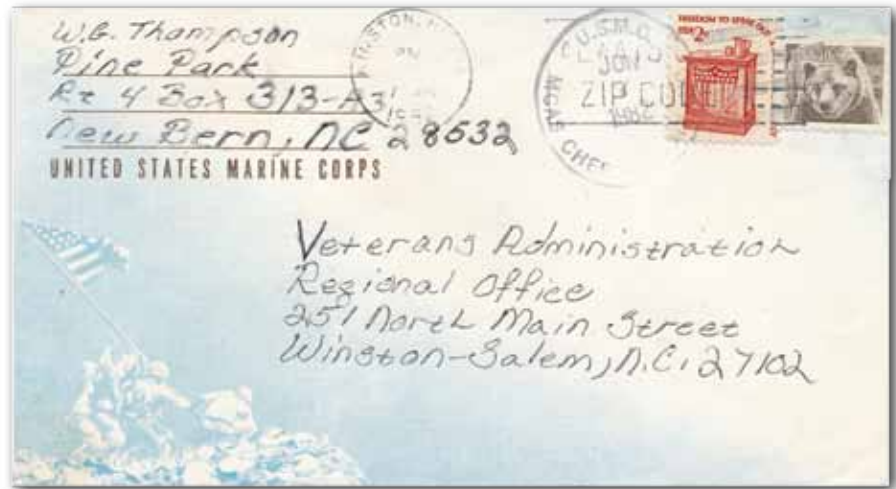 W.G. Thompson
Pine Park
Rt 4 Box 313-A
New Bern, NC 28532
UNITED STATES MARINE CORPS
PM
U.S.M.C.
JUN
ZIP CODE
1982
MCAS CHE
FREEDOM TO SPEAK OUT
USA 2c
Veterans Administration
Regional Office
251 North Main Street
Winston-Salem, N.C. 27102